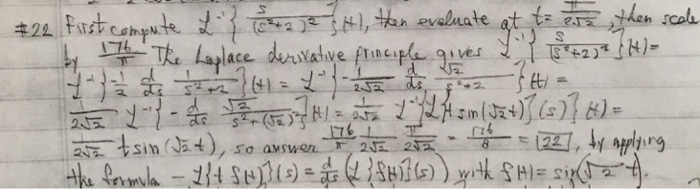 #22 First compute ℒ⁻¹{s/(s²+2)²}(t), then evaluate at t= π/(2√2), then scale
by 176/π. The Laplace derivative principle gives ℒ⁻¹{s/(s²+2)²}(t)=
ℒ⁻¹{-1/2 d/ds 1/(s²+2)}(t) = ℒ⁻¹{-1/(2√2) d/ds √2/(s²+2)}(t) =
1/(2√2) ℒ⁻¹{-d/ds √2/(s²+(√2)²)}(t) = 1/(2√2) ℒ⁻¹{ℒ{t sin(√2t)}(s)}(t) =
1/(2√2) t sin(√2t), so answer 176/π 1/(2√2) π/(2√2) = 176/8 = 22, by applying
the formula -ℒ{t f(t)}(s) = d/ds (ℒ{f(t)}(s)) with f(t) = sin(√2 t).